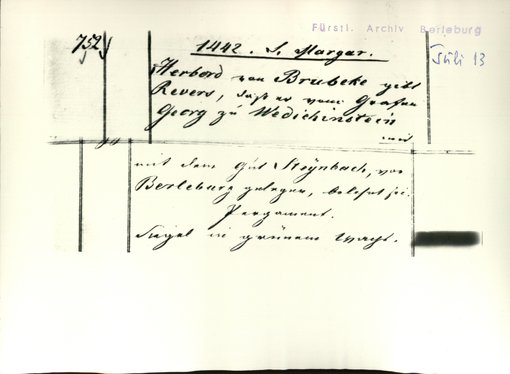 Fürstl. Archiv Berleburg
752
1442. S. Margar.
Juli 13
Herbord von Brubeke gibt
Revers, daß er vom Grafen
Georg zu Wedichinsteen
und
mit dem Gut Steynbach, vor
Berleburg gelegen, belehnt sei.
Pergament.
Siegel in grünem Wachs.